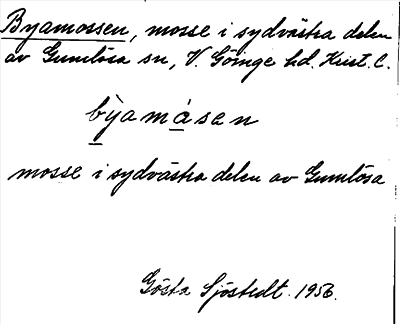 Byamossen, mosse i sydvästra delen
av Gumlösa sn, V. Göinge hd. Krist. L.
bỳamásen
mosse i sydvästra delen av Gumlösa
Gösta Sjöstedt. 1956.